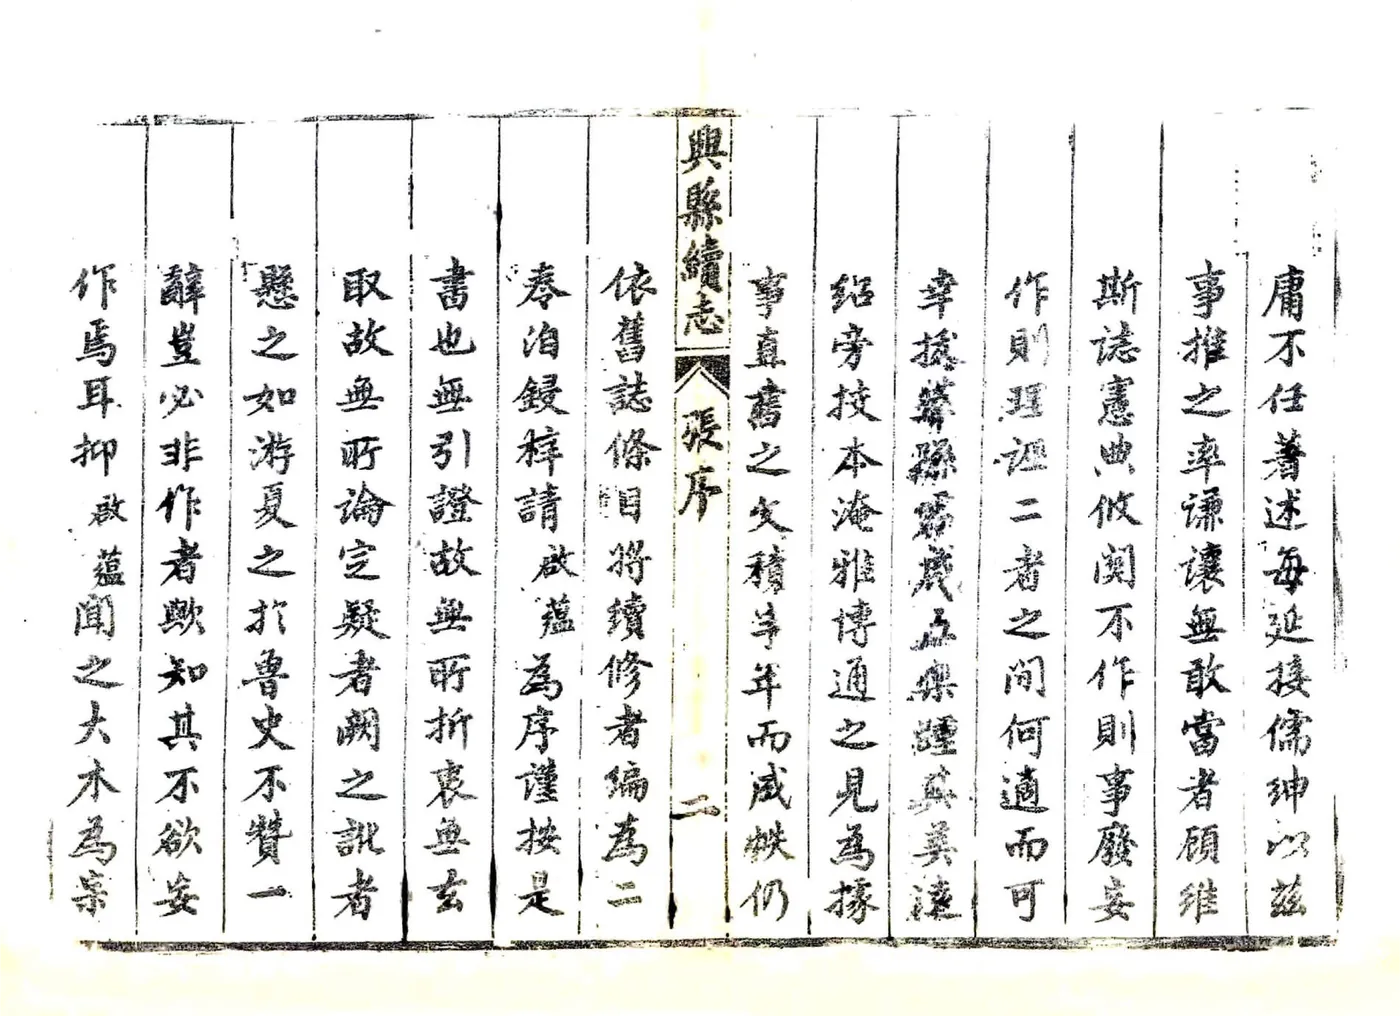 庸不任著述每延接儒紳以茲
事推之率谦讓無敢當者顧維
斯誌憲典攸関不作則事廢妄
作則理誣二者之間何適而可
幸孫歲樂踵其美遠
紹旁技本淹雅博通之見為據
事直書之文積半年而成帙仍
興縣續志
張序
二
依舊誌條目將續修者编為二
卷洎鋟梓請啟蕴為序謹按是
書也無引證故無所折衷無玄
取故無所論定疑者闕之訛者
懸之如游夏之扵魯史不贊一
辭豈必非作者歟知其不欲妄
作焉耳抑啟蕴聞之大木為杗